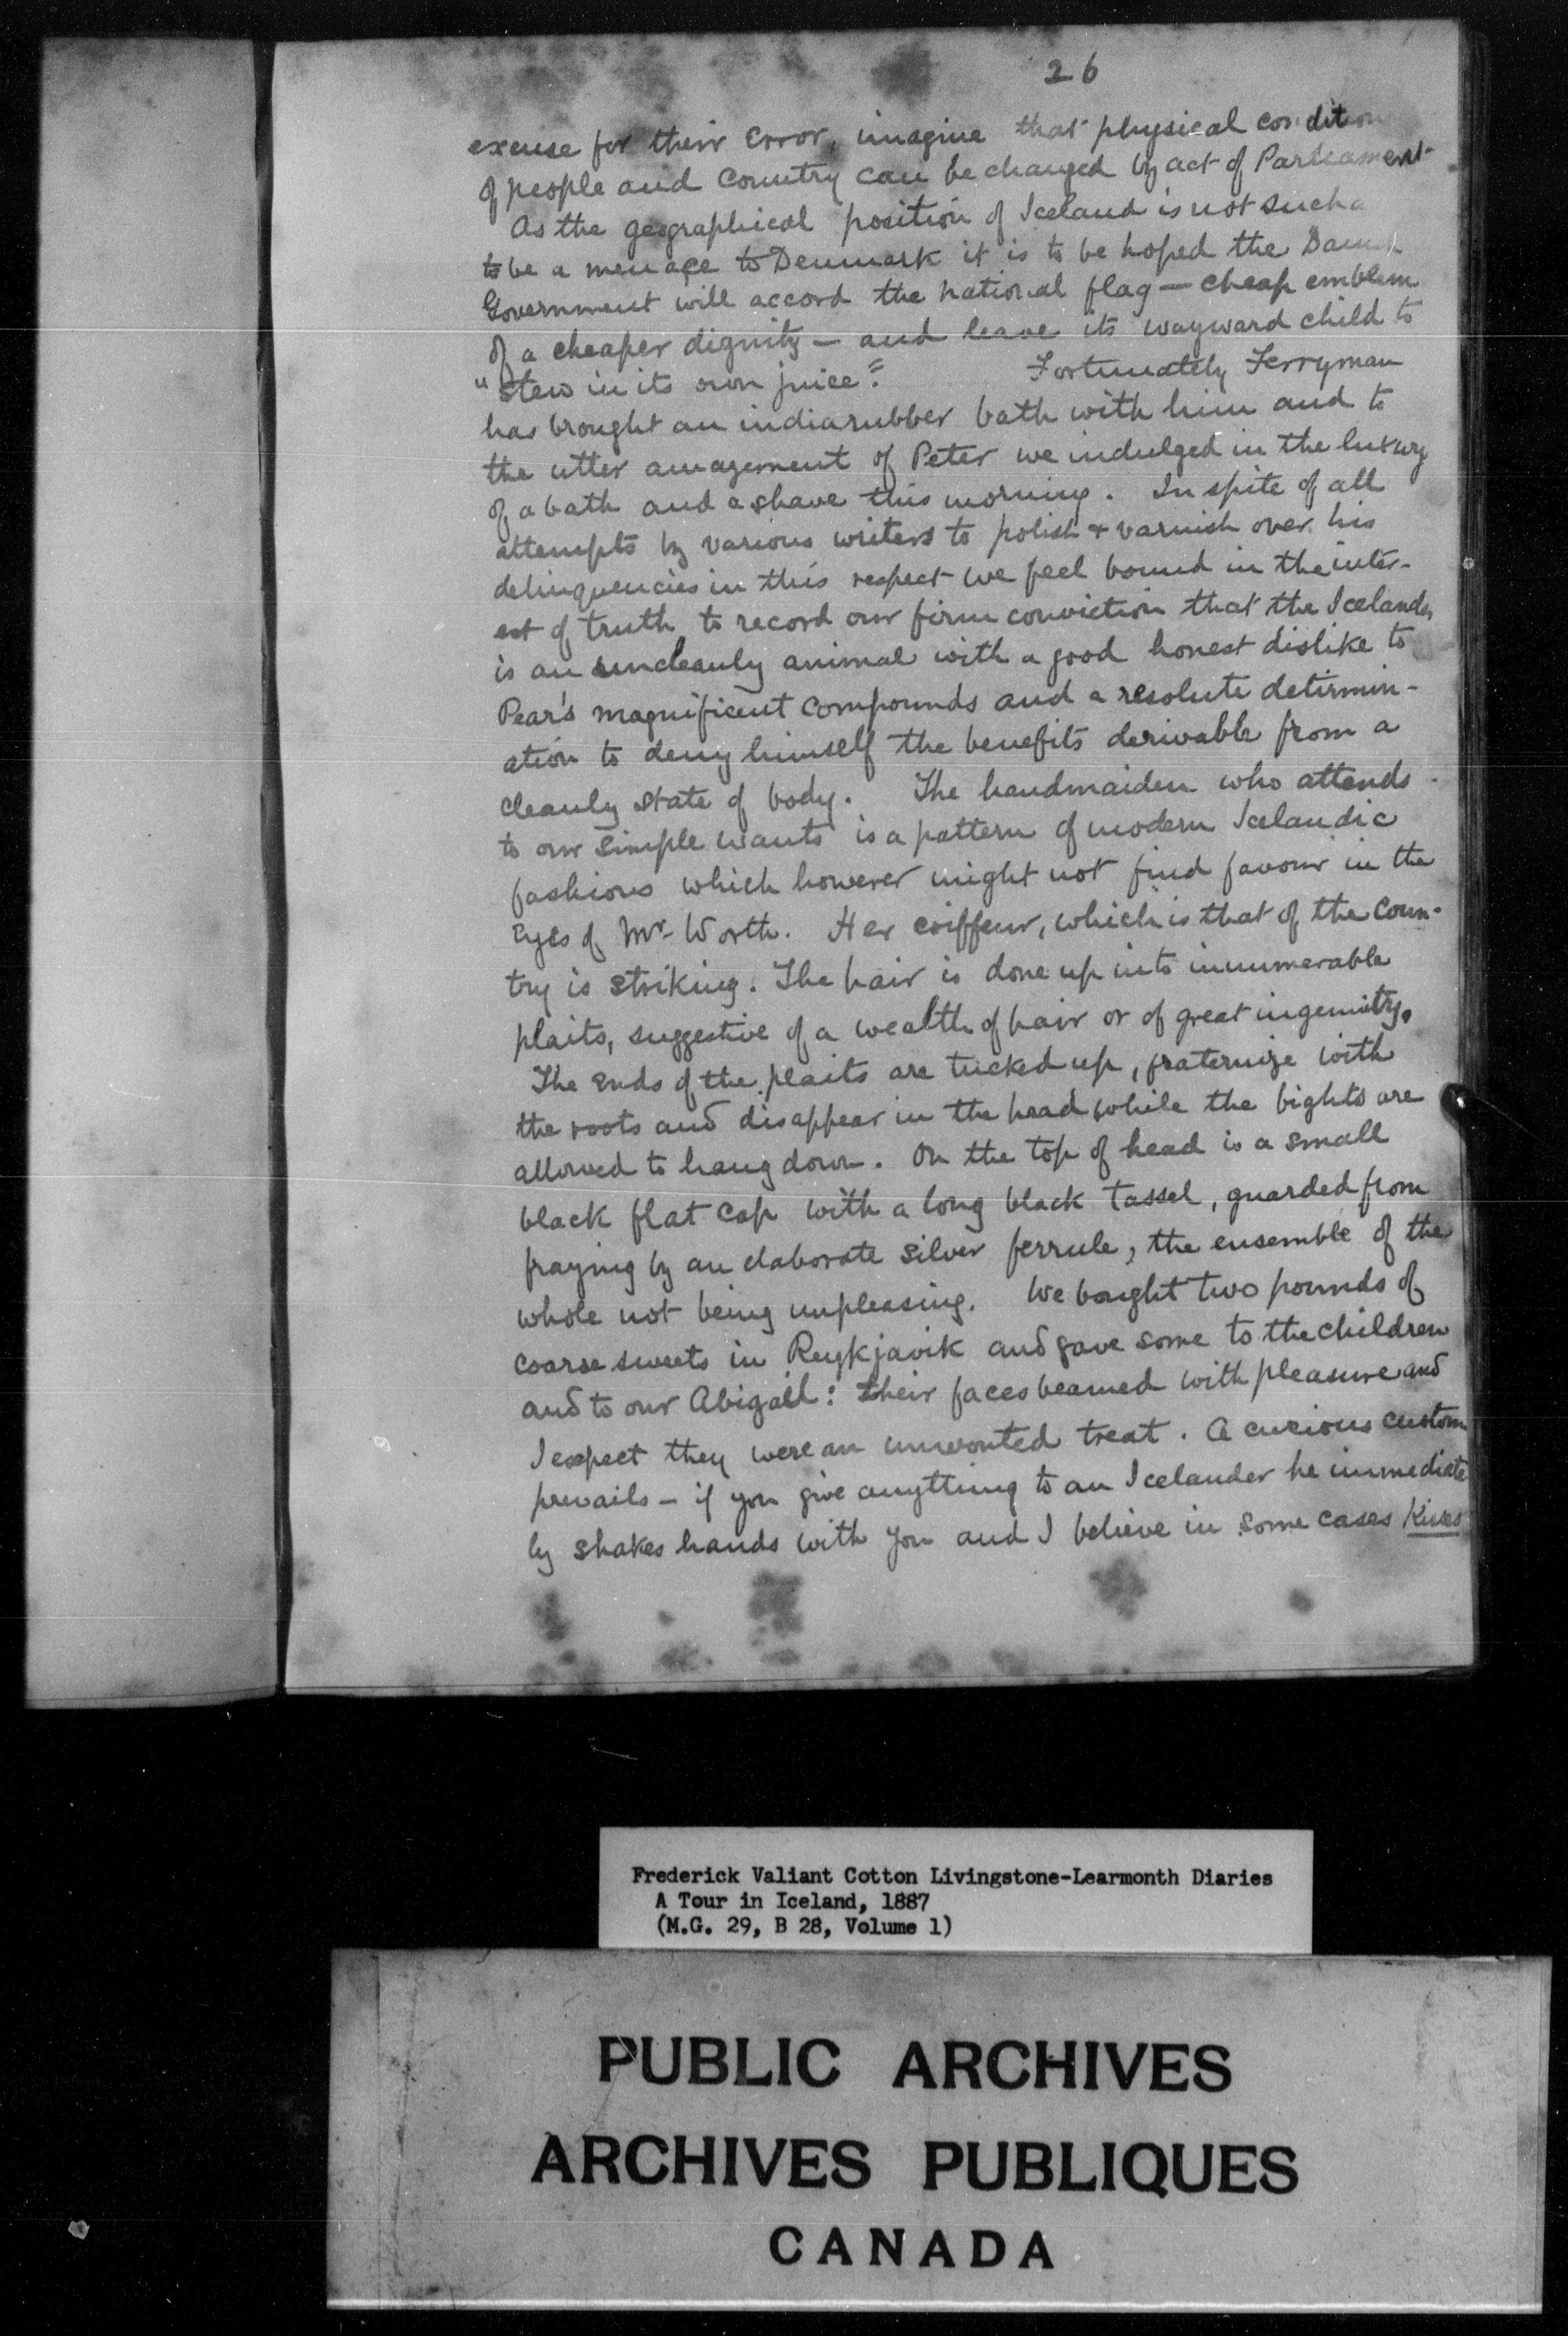 26
excuse for their error, imagine that physical condition
of people and country can be changed by act of Parliament
As the geographical position of Iceland is not such a
to be a menace to Denmark it is to be hoped the Danish
Government will accord the national flag — cheap emblem
of a cheaper dignity — and leave its wayward child to
"stew in its own juice". Fortunately Ferryman
has brought an indiarubber bath with him and to
the utter amazement of Peter we indulged in the luxury
of a bath and a shave this morning. In spite of all
attempts by various writers to polish & varnish over his
delinquencies in this respect we feel bound in the inter-
est of truth to record our firm conviction that the Icelander
is an uncleanly animal with a good honest dislike to
Pear's magnificent compounds and a resolute determin-
ation to deny himself the benefits derivable from a
cleanly state of body. The handmaiden who attends
to our simple wants is a pattern of modern Icelandic
fashions which however might not find favour in the
Eyes of Mr. Worth. Her coiffeur, which is that of the coun-
try is striking. The hair is done up into innumerable
plaits, suggestive of a wealth of hair or of great ingenuity.
The ends of the plaits are tucked up, fraternize with
the roots and disappear in the head while the bights are
allowed to hang down. On the top of head is a small
black flat cap with a long black tassel, guarded from
fraying by an elaborate silver ferrule, the ensemble of the
whole not being unpleasing. We bought two pounds of
coarse sweets in Reykjavik and gave some to the children
and to our Abigail: their faces beamed with pleasure and
I expect they were an unwonted treat. A curious custom
prevails — if you give anything to an Icelander he immediate
ly shakes hands with you and I believe in some cases kisses
Frederick Valiant Cotton Livingstone-Learmonth Diaries
A Tour in Iceland, 1887
(M.G. 29, B 28, Volume 1)
PUBLIC ARCHIVES
ARCHIVES PUBLIQUES
CANADA